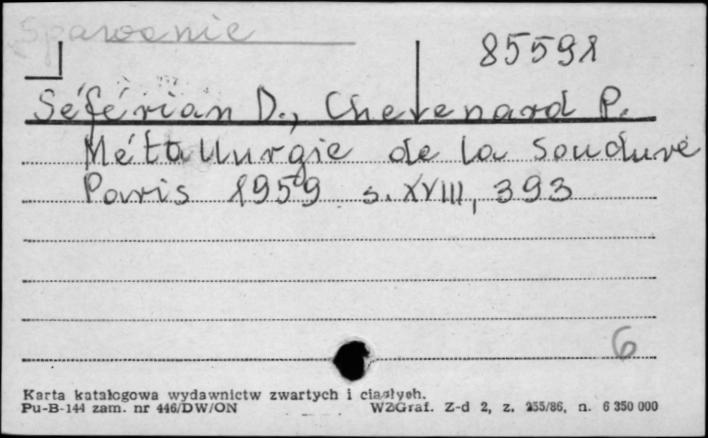 Spawanie
85598
Séférian D., Chevenard P.
Métallurgie de la Soudure
Paris 1959 s. XVIII, 393
6
Karta katalogowa wydawnictw zwartych i ciągłych.
Pu-B-144 zam. nr 446/DW/ON WZGraf. Z-d 2, z. 255/86, n. 6 350 000